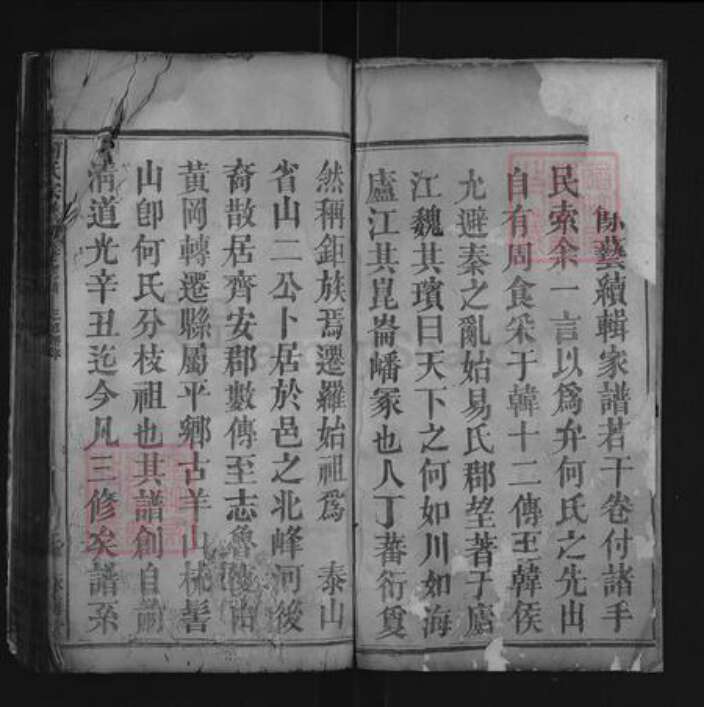 藝續輯家譜若干卷付諸手
民索余一言以爲弁何氏之先出
自有周食采于韓十二傳至韓侯
允避秦之亂始易氏郡望著于廬
江魏其璸曰天下之何如川如海
廬江其崑崙嶓冢也人丁蕃衍夐
然稱鉅族焉遷羅始祖爲 泰山
省山二公卜居於邑之北峰河後
裔散居齊安郡數傳至志魯
黃岡轉遷縣屬平鄉古羊山
山卽何氏分枝祖也其譜創自前
清道光辛丑迄今凡三修矣譜系